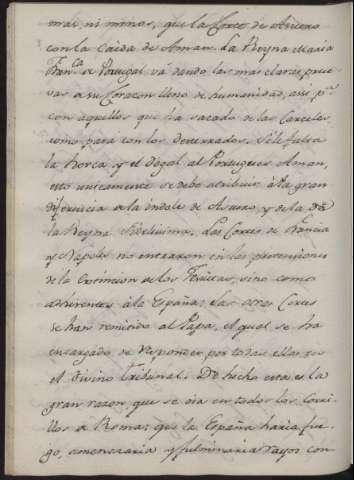 mas, ni menos, que la Corte de Asuero
con la caida de Aman. La Reyna Maria
Fran.ca de Portugal vá dando las mas claras prue-
vas a su Corazon lleno de humanidad, assi p.ª
con aquellos que ha sacado de las Carceles,
como para con los desterrados. Si le falta
la Horca, y el dogal al Portugues Aman,
esto unicamente se debe atribuir à la gran
diferencia de la indole de Asuero, y de la de
la Reyna fidelissima. Las Cortes de Francia
y Napoles no entraron en las pretensiones
de la Extincion de los Jesuitas, sino como
adherentes à la España: las otras Cortes
se han remitido al Papa, el qual se ha
encargado de responder por todas ellas en
el Divino Tribunal. De hecho esta es la
gran razon que se oía en todos los Corri-
llos a Roma: que la España haria fue-
go, amenazaria y fulminaria rayos con